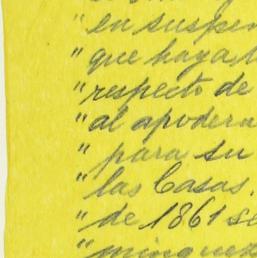 " en suspen
" que haya
" respecto de
" al apodera
" para su
" las Casas.
" de 1861 se